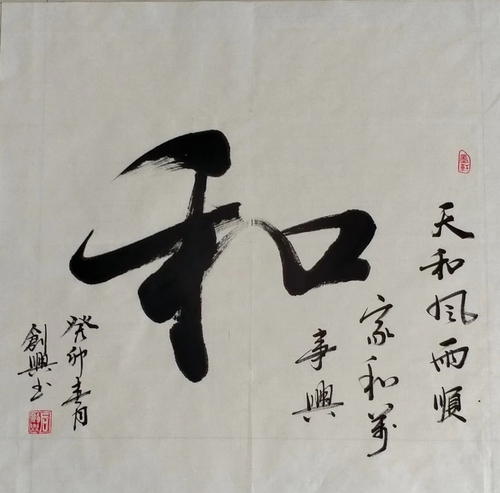 和
天和風雨順
家和萬
事興
癸卯春月
創興书